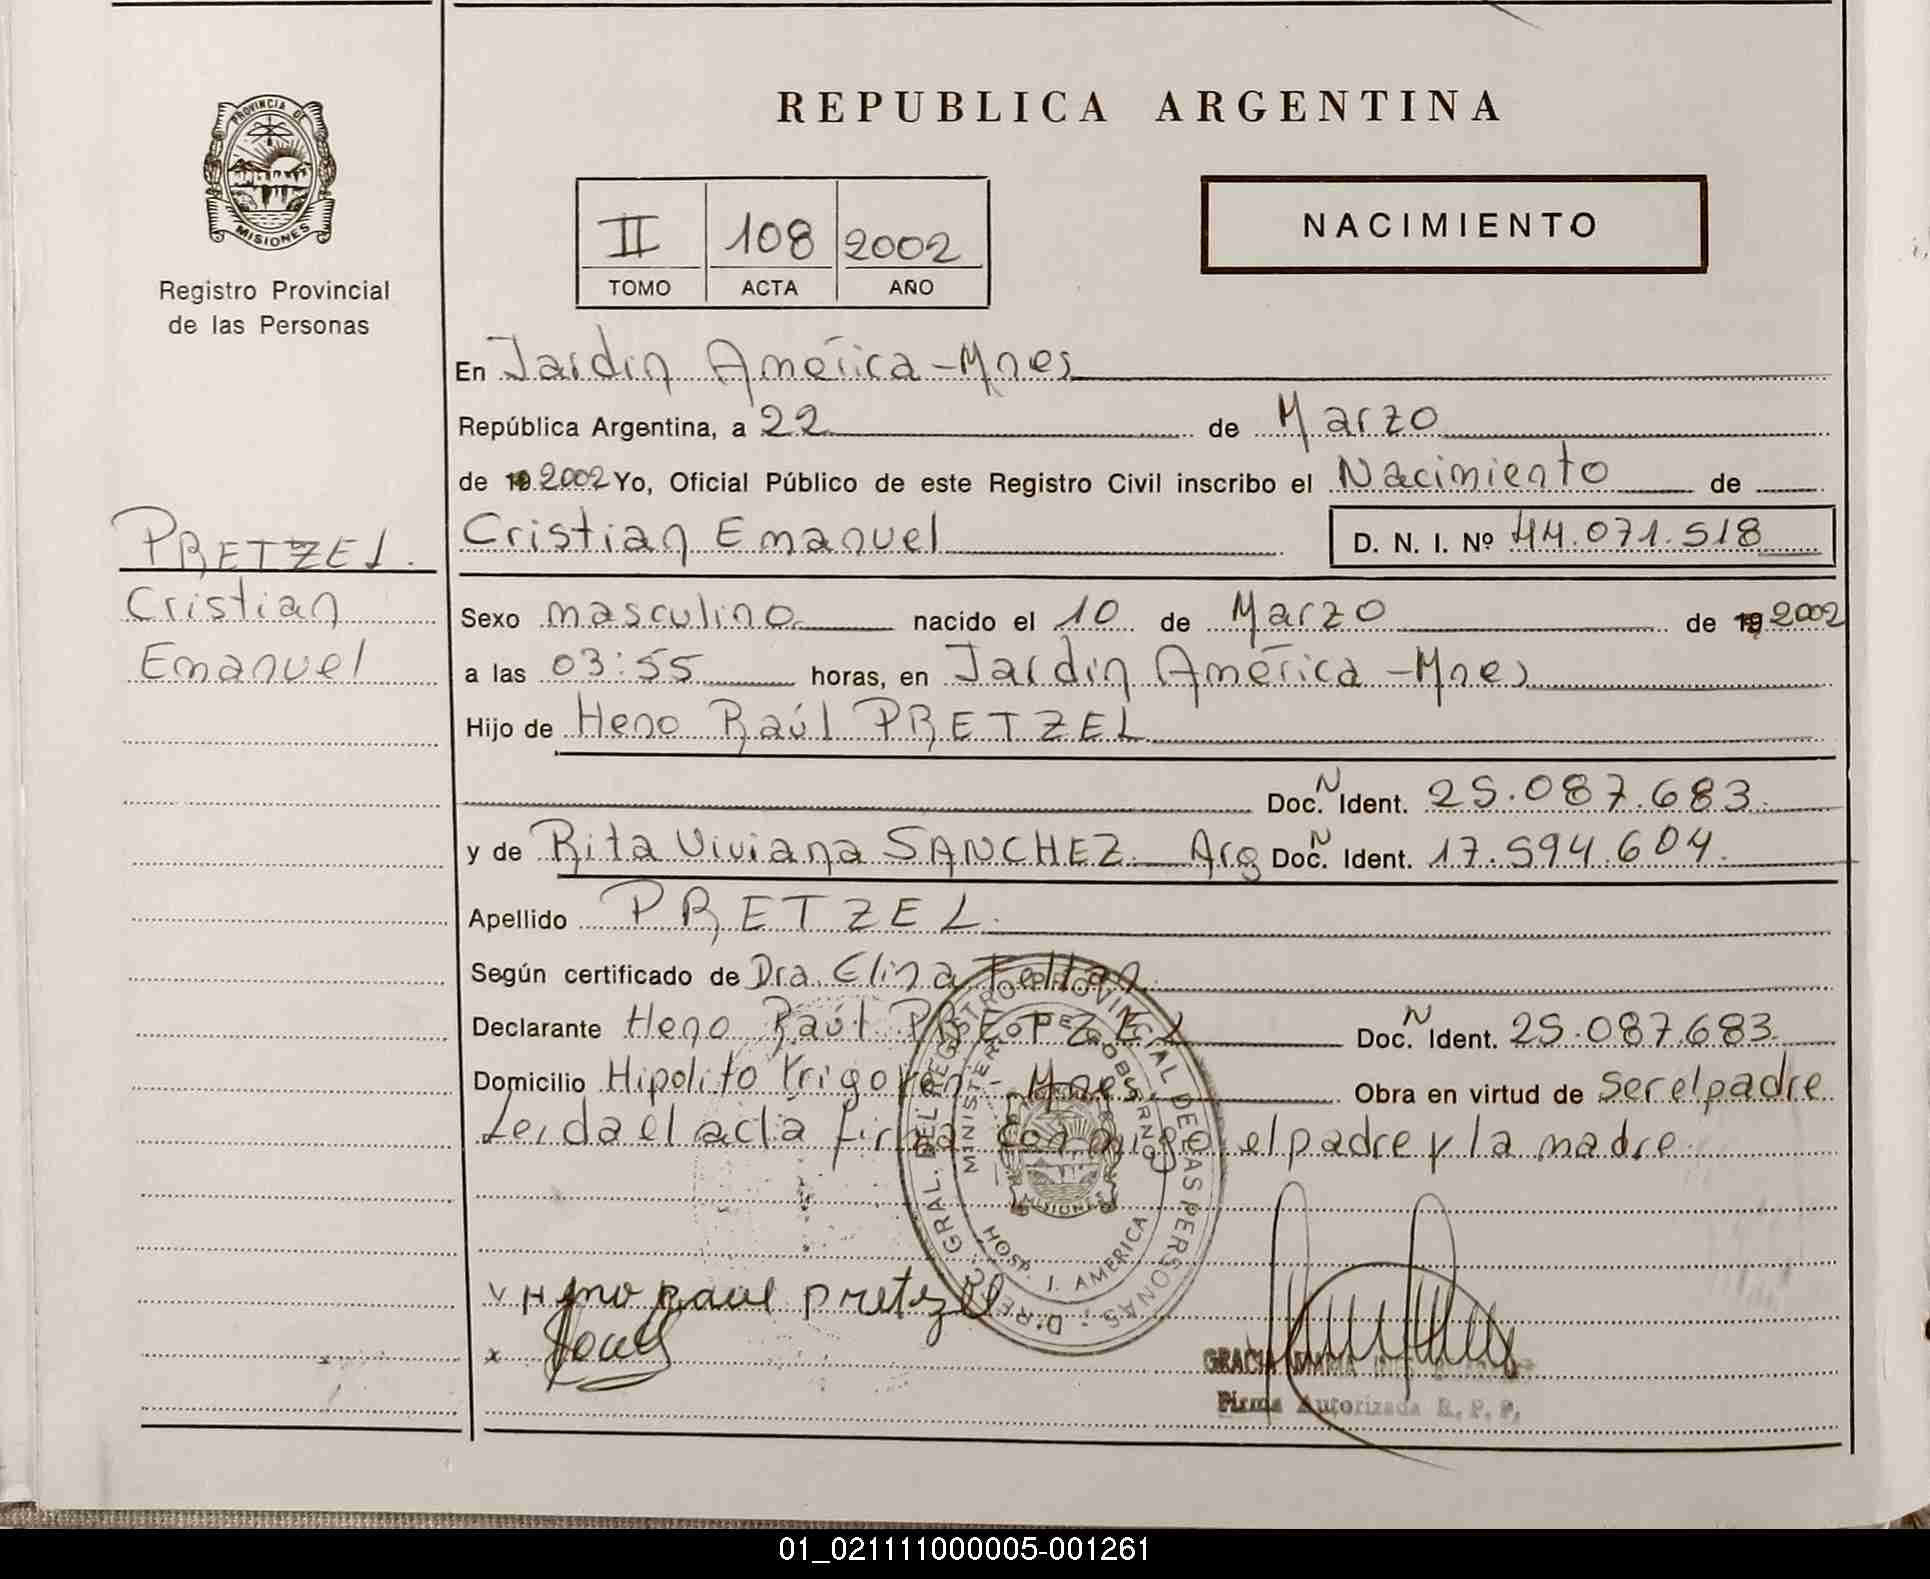 PROVINCIA DE
MISIONES
Registro Provincial
de las Personas
PRETZEL.
Cristian
Emanuel
REPUBLICA ARGENTINA
II 108 2002
TOMO ACTA AÑO
NACIMIENTO
En Jardin América - Mnes
República Argentina, a 22 de Marzo
de 19 2002 Yo, Oficial Público de este Registro Civil inscribo el Nacimiento de
Cristian Emanuel D. N. I. Nº 44.071.518
Sexo masculino nacido el 10 de Marzo de 19 2002
a las 03:55 horas, en Jardin América - Mnes
Hijo de Heno Raúl PRETZEL
Doc. N Ident. 25.087.683
y de Rita Viviana SANCHEZ Arg Doc. N Ident. 17.594.604
Apellido PRETZEL.
Según certificado de Dra. Elina
Declarante Heno Raúl PRETZEL Doc. N Ident. 25.087.683
Domicilio Hipolito Yrigoyen - Mnes. Obra en virtud de ser el padre
Leida el acta firma conmigo el padre y la madre.
D. REG. GRAL. DEL REGISTRO PROVINCIAL DE LAS PERSONAS
MINISTERIO DE GOBIERNO
MISIONES
HOSP. J. AMERICA
V Heno Raul Pretzel
x
GRACIA MARIA
Firma Autorizada R. P. P.
01_021111000005-001261